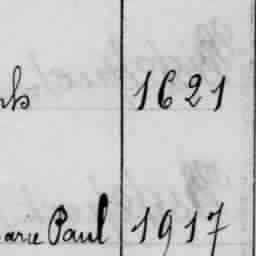 1621
arie Paul 1917